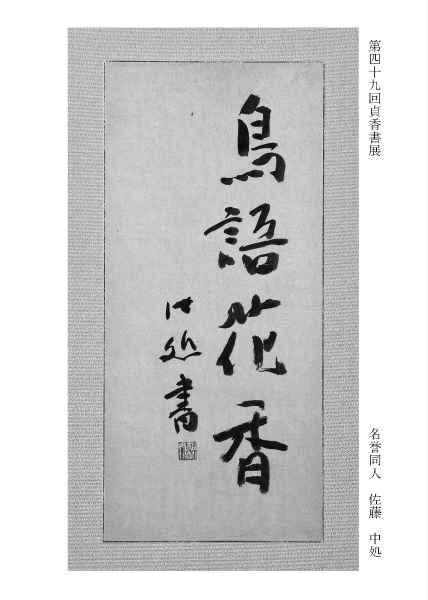 第四十九回貞香書展
名誉同人　佐藤　中処
鳥語花香
書